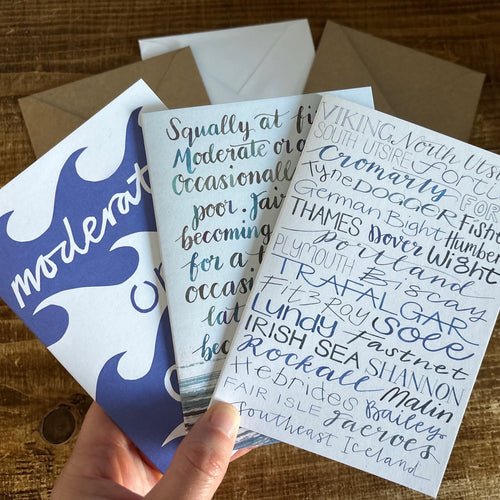 moderat
or
Squally at fi
Moderate or
Occasionall
poor. Fair
becoming
for a t
occasi
lat
bec
VIKING North Utsi
SOUTH UTSIRE Forti
Cromarty FOR
Tyne DOGGER Fishe
German Bight Humber
THAMES Dover Wight
Portland
PLYMOUTH Biscay
TRAFALGAR
FitzRoy Sole
Lundy Fastnet
IRISH SEA SHANNON
Rockall Malin
Hebrides Bailey
FAIR ISLE Faeroes
Southeast Iceland